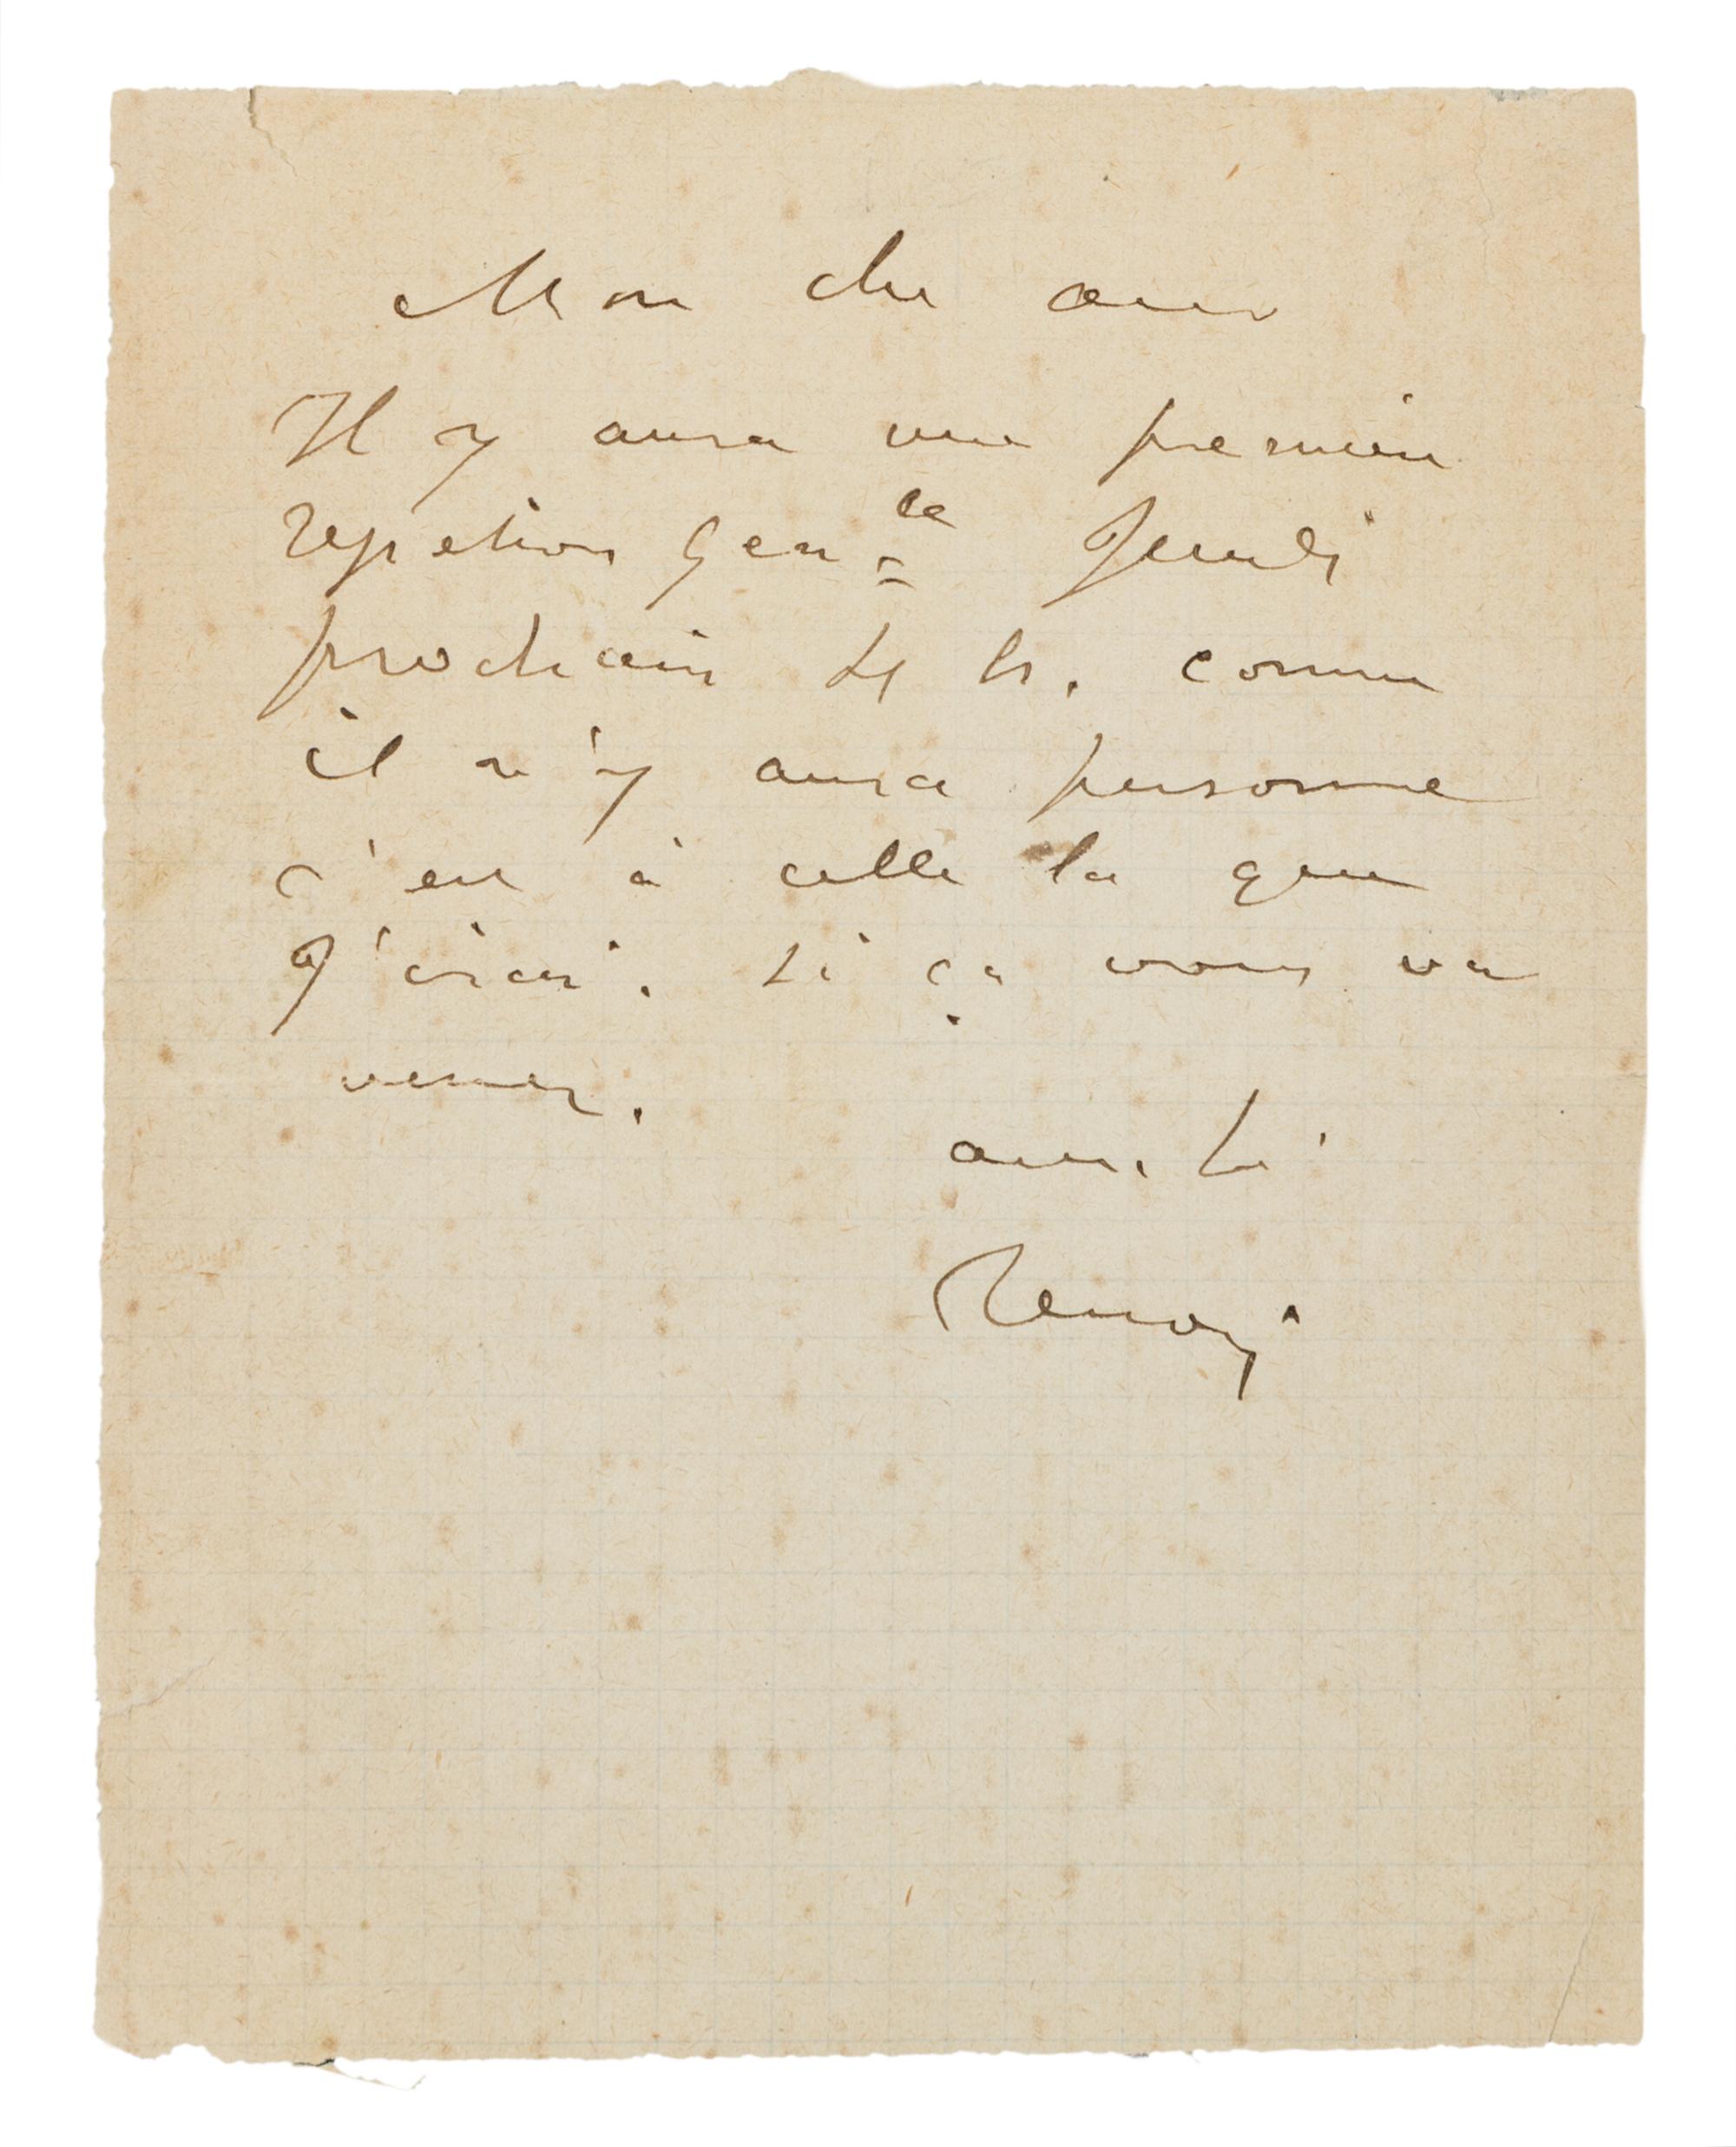 Mon cher ami
Il y aura une première
repetion gen le Jeudi
prochain 4 h. comme
il n'y aura personne
c'est à celle la que
J'irai. si ça vous va
venez.
amitié
Renoir